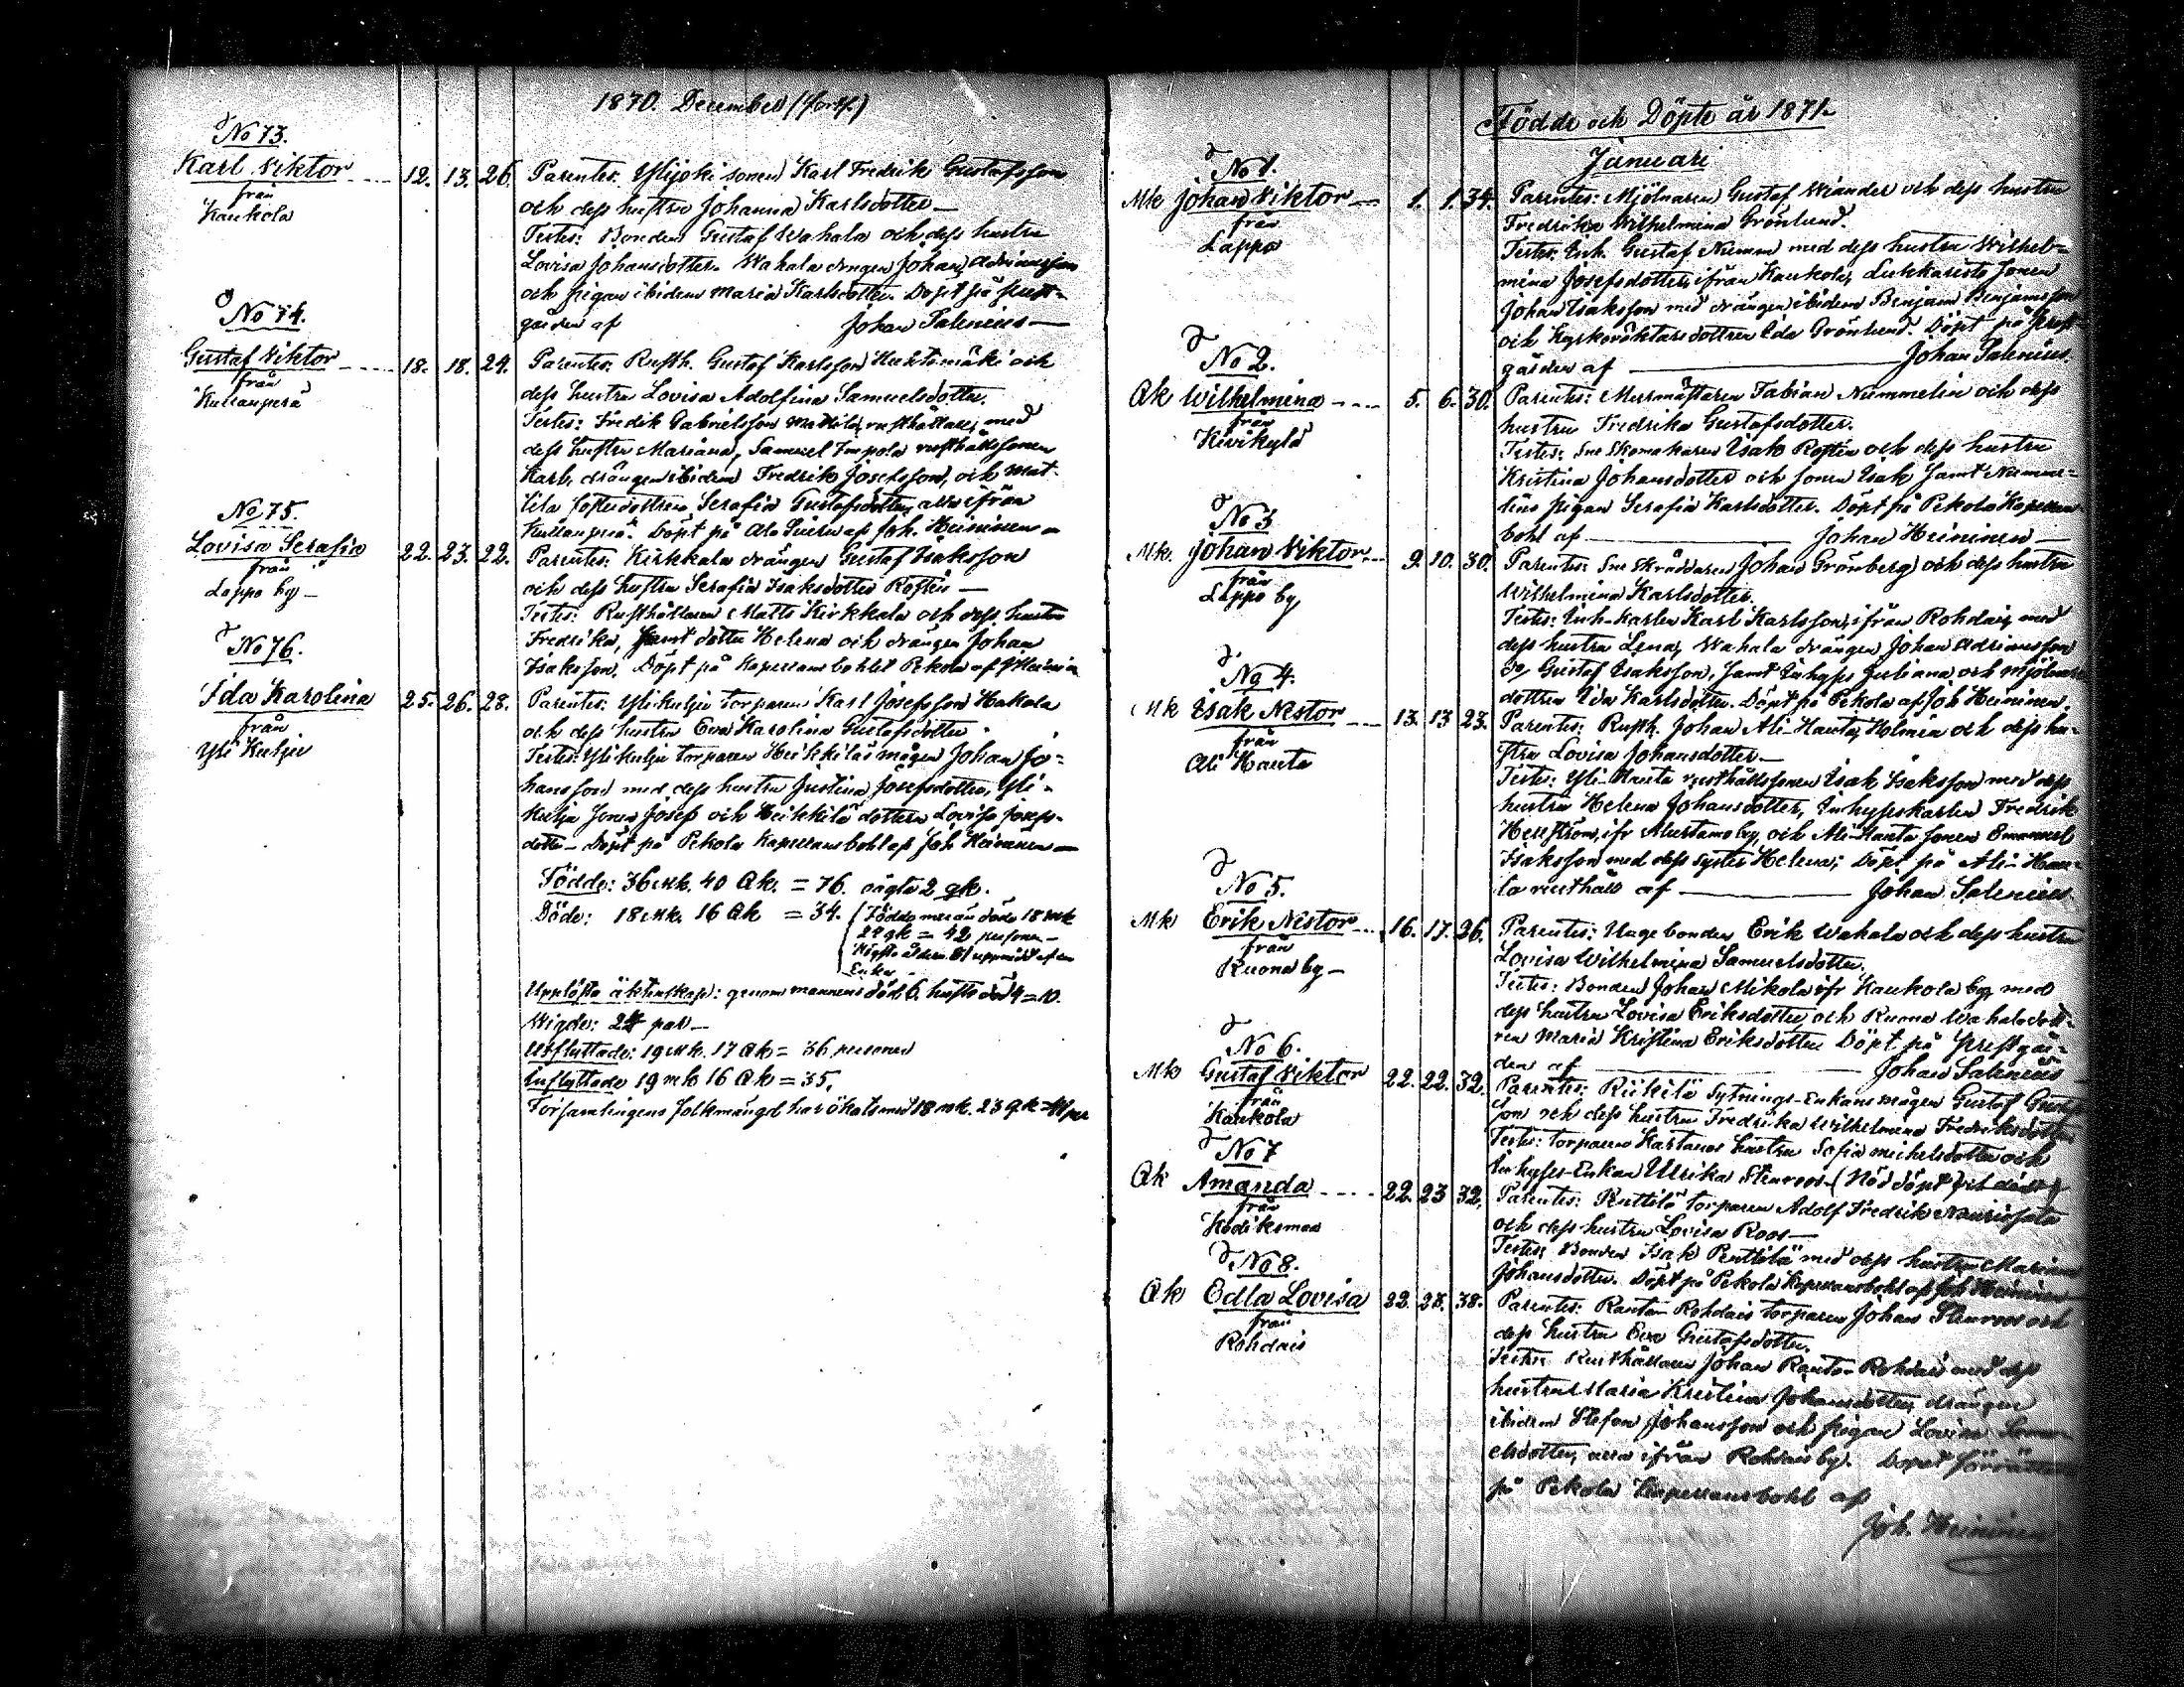 1870. December (forts.)
No 73.
Karl Viktor
från
Kaukola
12. 13. 26.
Parentes: Ylijoki sonen Karl Fredrik Gustafsson
och dess hustru Johanna Karlsdotter —
Testes: Bonden Gustaf Wahala och dess hustru
Lovisa Johansdotter. Wahala drängen Johan Adriansson
och pigan ibidem Maria Karlsdotter. Döpt på prest-
gården af Johan Salenius —
No 74.
Gustaf Viktor
från
Kullanperä
18. 18. 24.
Parentes: Rusth. Gustaf Karlsson Huhtamäki och
dess hustru Lovisa Adolfina Samuelsdotter.
Testes: Fredik Gabrielsson Mattila, rusthållare, med
dess hustru Mariana, Samuel Impola rusthållssonen
Karl, drängen ibidem Fredrik Josefsson, och Mat-
tila dottren Serafia Gustafsdotter, alla ifrån
Kullanperä. Döpt på Ala af Joh. Heininen —
No 75.
Lovisa Serafia
från
Lappo by —
22. 23. 22.
Parentes: Kirkkala drängen Gustaf Isaksson
och dess hustru Serafia Isaksdotter Rostén —
Testes: Rusthållaren Matts Kirkkala och dess hustru
Fredrika, samt dotter Helena och drängen Johan
Isaksson. Döpt på Kapellansbohlet Pekola af J Heininen
No 76.
Ida Karolina
från
Yli Kulju
25. 26. 28.
Parentes: Yli Kulju torparen Karl Josefsson Hakala
och dess hustru Eva Karolina Gustafsdotter.
Testes: Yli Kulju torparen Heikkiläs mågen Johan Jo-
hansson med dess hustru Justina Josefsdotter, Yli-
Kulju sonen Josef och Heikkilä dottren Lovisa Josefs-
dotter — Döpt på Pekola Kapellansbohl af Joh Heininen —
Födde: 36 Mk. 40 Qk. = 76. oägta 2 qk.
Döde: 18 Mk. 16 Qk = 34.
Födde mer än döde 18 mk
24 qk = 42 personer —
Högsta åldern uppnådd af en
Enka
Upplösta äktenskap: genom mannens död 6. hustr död 4 = 10.
Wigde: 24 par —
Utflyttade: 19 Mk. 17 Qk = 36 personer
Inflyttade 19 mk 16 Qk = 35.
Församlingens folkmängd har ökats med 18 mk. 23 qk = 41 per
Födde och Döpte år 1871.
Januari
No 1.
Mk Johan Viktor
från
Lappo
1. 1. 34.
Parentes: Mjölnaren Gustaf Wiander och dess hustru
Fredrika Wilhelmina Grönlund.
Testes: Inh. Gustaf Numm med dess hustru Wilhel-
mina Josefsdotter, ifrån Kaukola, sonen
Johan Isaksson med drängen ibidem Benjam Benjamsson
och dottren Ida Grönlund. Döpt på Prest-
gården af Johan Salenius.
No 2.
Qk Wilhelmina
från
Kivikylä
5. 6. 30.
Parentes: Murmästaren Fabian Nummelin och dess
hustru Fredrika Gustafsdotter.
Testes: Sne Skomakaren Isak Rostén och dess hustru
Kristina Johansdotter och sonen Isak samt Numme-
lins pigan Serafia Karlsdotter. Döpt på Pekola Kapellans
bohl af Johan Heininen —
No 3
Mk. Johan Viktor
från
Lappo by
9. 10. 30.
Parentes: Sne Skräddaren Johan Grönberg och dess hustru
Wilhelmina Karlsdotter.
Testes: Inh-Karlen Karl Karlsson, ifrån Rohdais, med
dess hustru Lena, Wahala drängen Johan Adriansson
Gustaf Isaksson, samt Inhyses Juliana och mjölnare
dottren Ida Karlsdotter. Döpt på Pekola af Joh Heininen.
No 4.
Mk Isak Nestor
från
Ali Hauta
13. 13 23.
Parentes: Rusth. Johan Ali-Hauta, Holmén och dess hu-
stru Lovisa Johansdotter —
Testes: Yli-Hauta rusthållssonen Isak Isaksson med dess
hustru Helena Johansdotter, Inhyseskarlen Fredrik
Hellström, ifr by, och Ali-Hauta sonen Emanuel
Isaksson med dess syster Helena; Döpt på Ali-Hau-
ta rusthåll af Johan Salenius
No 5.
Mk Erik Nestor
från
Ruona by —
16. 17. 26.
Parentes: Unge bonden Erik Wahala och dess hustru
Lovisa Wilhelmina Samuelsdotter.
Testes: Bonden Johan Mikola ifr Kaukola by, med
dess hustru Lovisa Eriksdotter och Ruona Wahala dott-
ren Maria Kristina Eriksdotter. Döpt på prestgår-
den af Johan Salenius
No 6.
Mk Gustaf Viktor
från
Kaukola
22. 22. 32.
Parentes: Riikilä Sytnings-Enkans mågen Gustaf
son och dess hustru Fredrika Wilhelmina Fredriksdotter
Testes: torparen Kartanos hustru Sofia Michelsdotter och
Inhyses-Enkan Ulrika Stenroos (Nöd döpt och dödt)
No 7
Qk Amanda
från
Kodiksmaa
22. 23 32.
Parentes: Ruttilä torparen Adolf Fredrik
och dess hustru Lovisa Roos —
Testes: Bonden Isak Penttilä med dess hustru Mariana
Johansdotter. Döpt på Pekola Kapellansbohl af Joh Heininen
No 8.
Qk Edla Lovisa
från
Rohdais
22. 23. 38.
Parentes: Rantan Rohdais torparen Johan Stenroos och
dess hustru Eva Gustafsdotter.
Testes: Rusthållaren Johan Ranta-Rohdais med dess
hustru Maria Kristina Johansdotter, drängen
ibidem Stefan Johansson och pigan Lovisa Samu-
elsdotter, alla ifrån Rohdais by. Döpet förrättadt
på Pekola Kapellansbohl af
Joh. Heininen